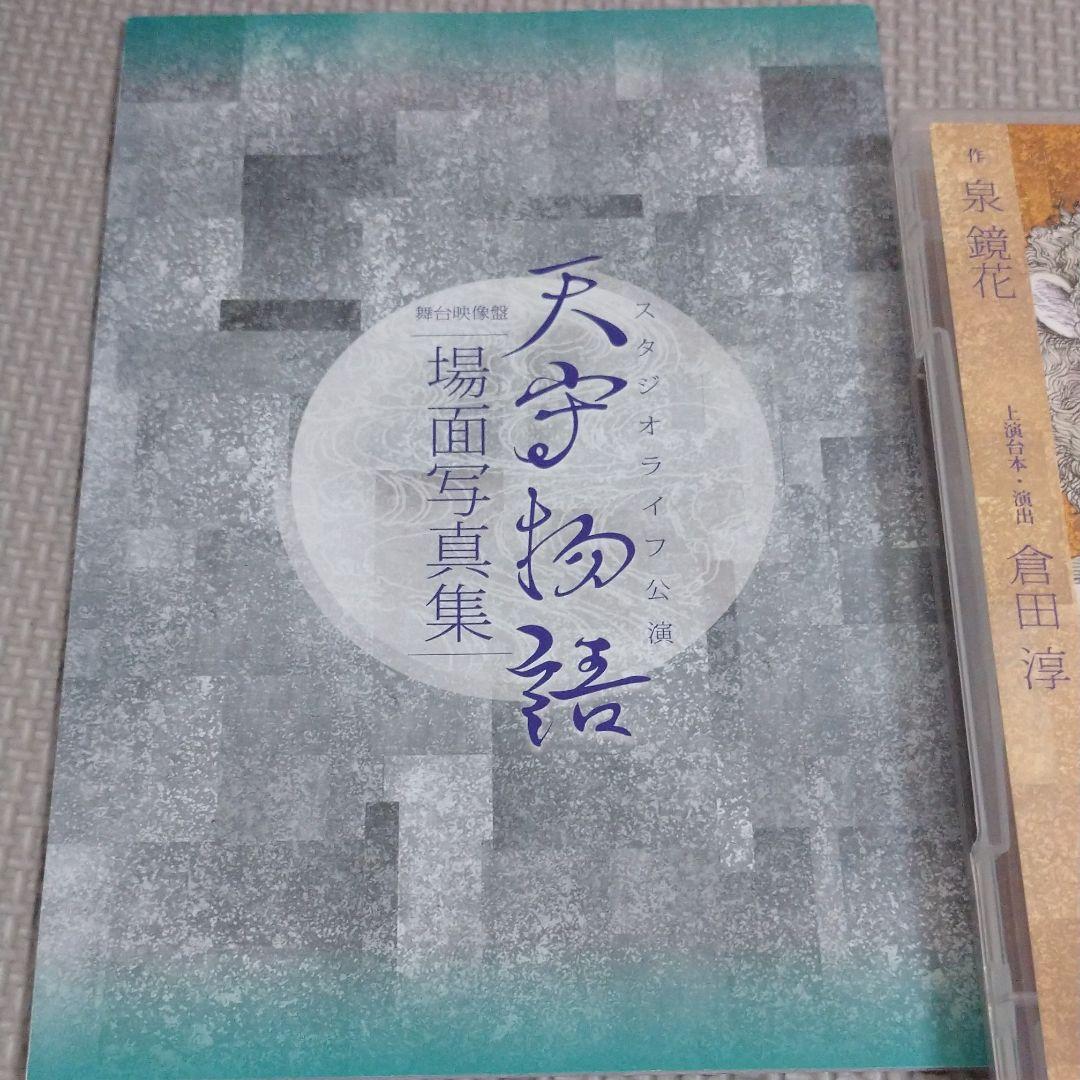 スタジオライフ公演
天守物語
舞台映像盤
場面写真集
作 泉鏡花
上演台本・演出 倉田淳